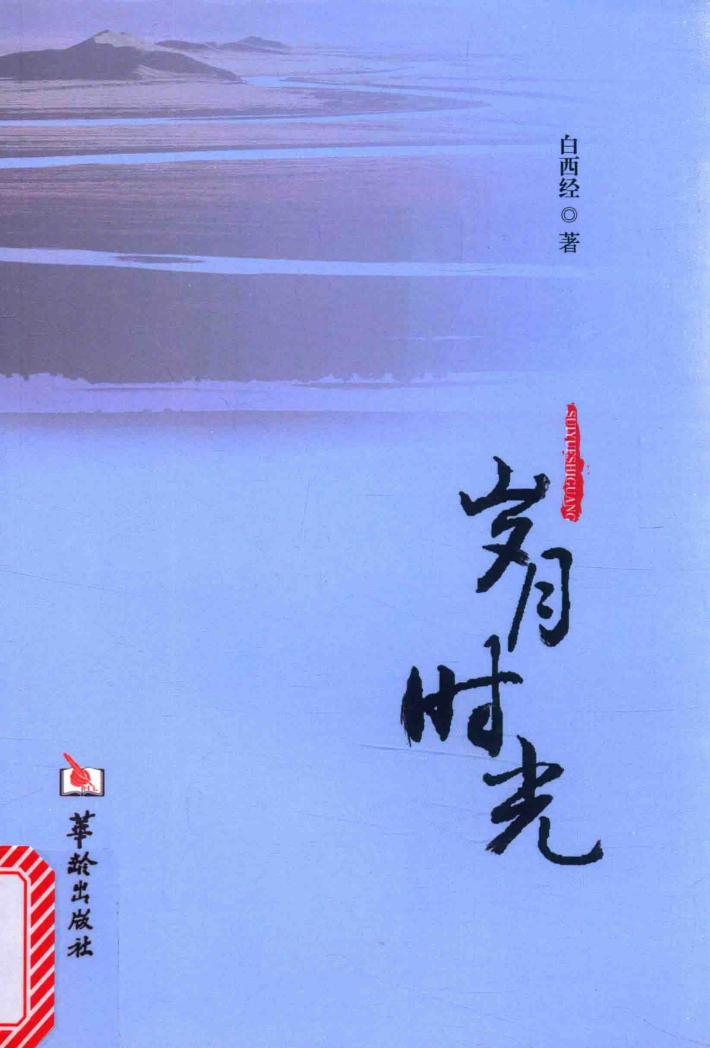 白西经◎著
SUIYUESHIGUANG
岁月时光
華龄出版社